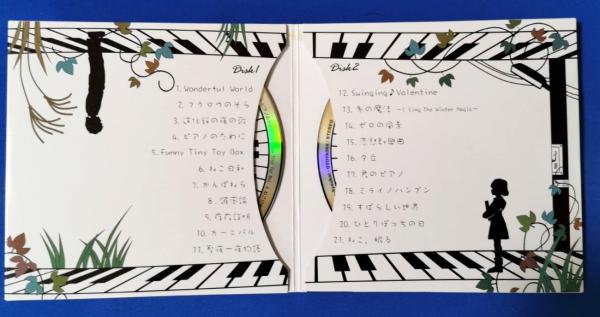 Disk1
1. Wonderful World
2. フクロウのそら
3.
4. ピアノのために
5. Funny Tiny Toy Box
6. ねこ日和
7. かんぱねら
8.
9.
10. カーニバル
11. 聖夜一夜物語
Disk2
12. Swinging♪Valentine
13. 冬の魔法 ~I Sing The Winter Magic~
14. ゼロの風景
15.
16. 夕立
17. 君のピアノ
18. ミライノハンブン
19. すばらしい世界
20. ひとりぼっちの日
21. ねこ、眠る